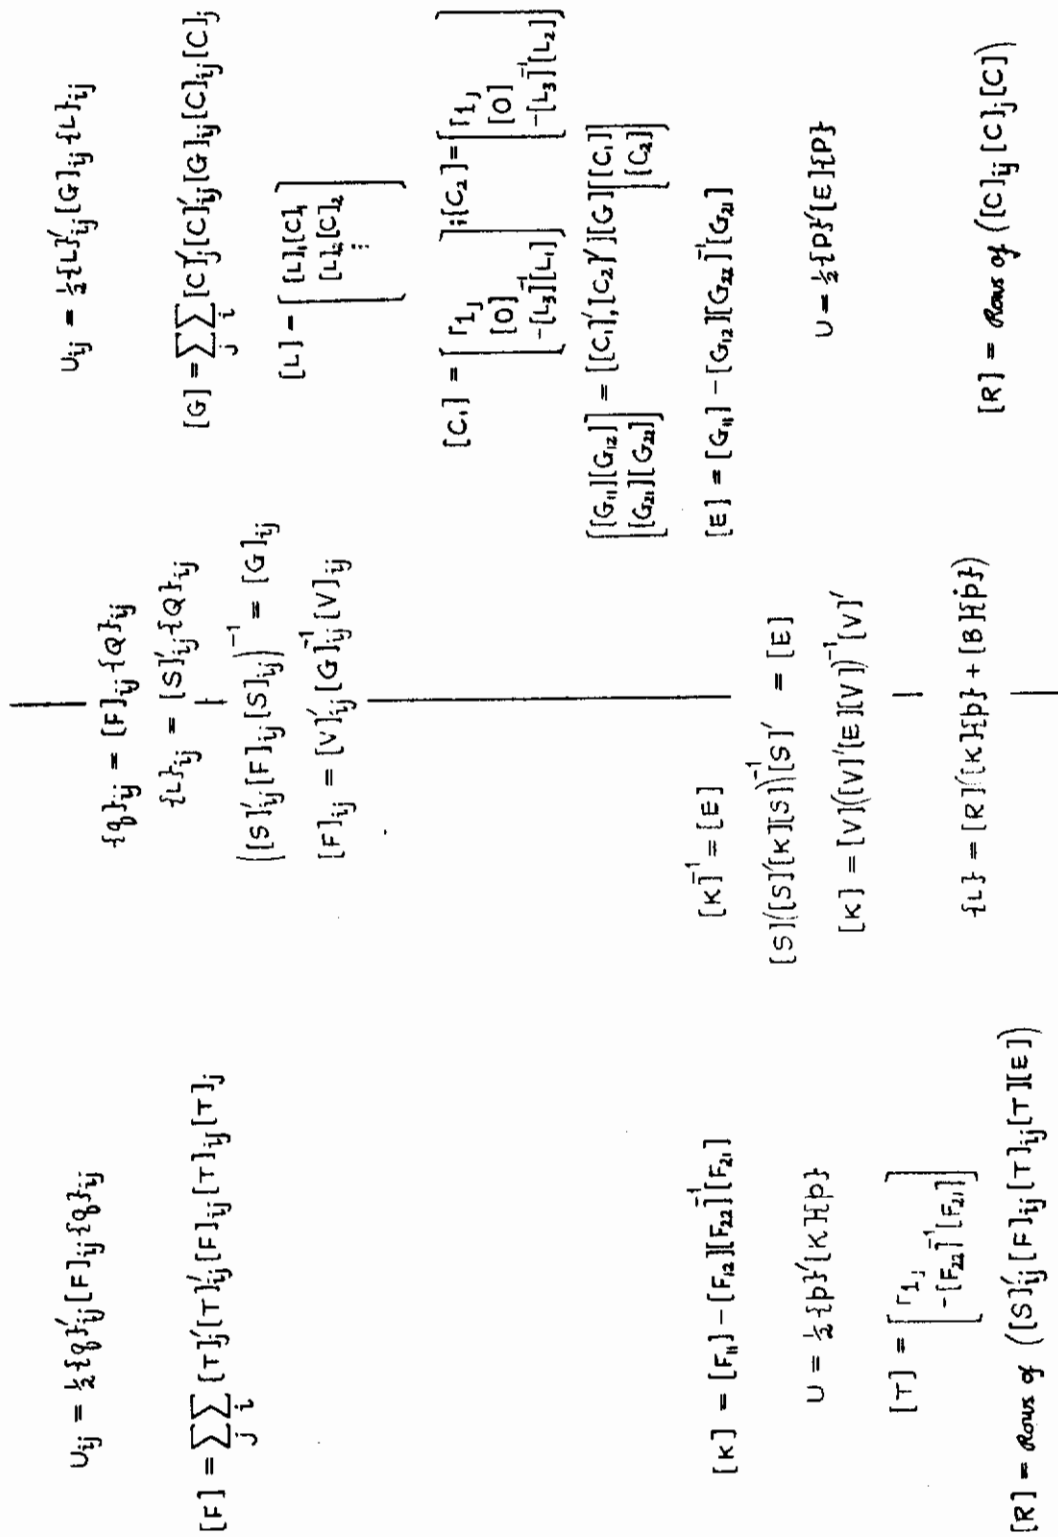 U_ij = ½{q}'_ij [F]_ij {q}_ij
[F] = Σ_j Σ_i [T]'_j [T]'_ij [F]_ij [T]_ij [T]_j
[K] = [F₁₁] − [F₁₂][F₂₂]⁻¹[F₂₁]
U = ½{p}'[K]{p}
[T] = [ ⌈1⌋
−[F₂₂]⁻¹[F₂₁] ]
[R] = Rows of ([S]'_ij [F]_ij [T]_ij [T][E])
{q}_ij = [F]_ij {Q}_ij
{L}_ij = [S]'_ij {Q}_ij
([S]'_ij [F]_ij [S]_ij)⁻¹ = [G]_ij
[F]_ij = [V]'_ij [G]⁻¹_ij [V]_ij
[K]⁻¹ = [E]
[S]([S]'[K][S])⁻¹[S]' = [E]
[K] = [V]([V]'[E][V])⁻¹[V]'
{L} = [R]([K]{p} + [B]{ṗ})
U_ij = ½{L}'_ij [G]_ij {L}_ij
[G] = Σ_j Σ_i [C]'_j [C]'_ij [G]_ij [C]_ij [C]_j
[L] = [ [L]₁[C]₁
[L]₂[C]₂
⋮ ]
[C₁] = [ ⌈1⌋
[0]
−[L₃]⁻¹[L₁] ] ; [C₂] = [ ⌈1⌋
[0]
−[L₃]⁻¹[L₂] ]
[ [G₁₁][G₁₂]
[G₂₁][G₂₂] ] = [[C₁]',[C₂]'][G][ [C₁]
[C₂] ]
[E] = [G₁₁] − [G₁₂][G₂₂]⁻¹[G₂₁]
U = ½{P}'[E]{P}
[R] = Rows of ([C]_ij [C]_j [C])